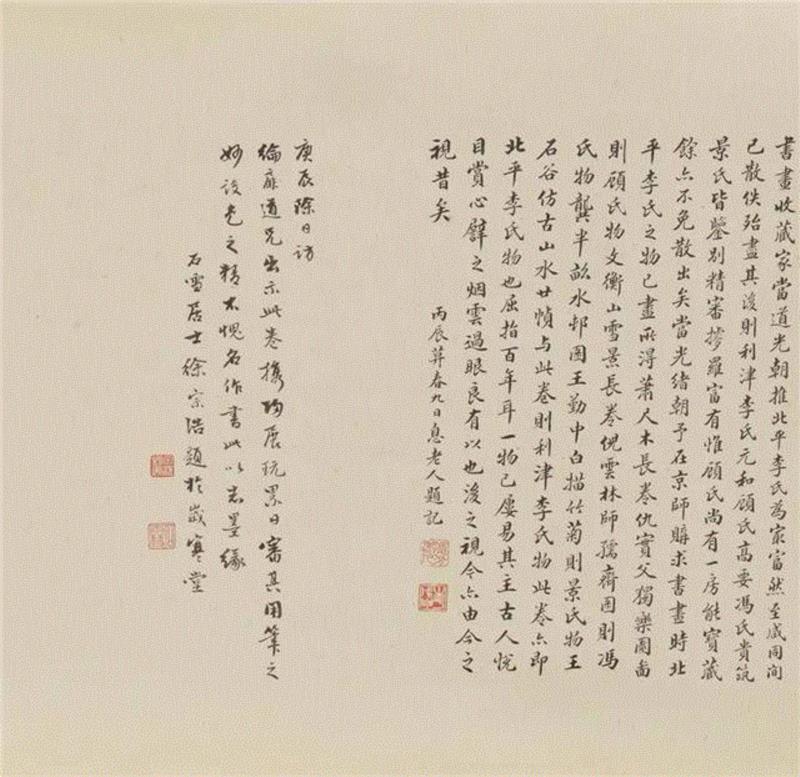 書畫收藏家當道光朝推北平李氏為最富然至咸同間
已散佚殆盡其後則利津李氏元和顧氏高要馮氏貴筑
景氏皆鑒別精審搜羅富有惟顧氏尚有一房能寶藏
餘亦不免散出矣當光緒朝予在京師購求書畫時北
平李氏之物已盡所得蕭尺木長卷仇實父獨樂園圖
則顧氏物文衡山雪景長卷倪雲林師孺齋圖則馮
氏物龔半畝水邨圖王勤中白描竹菊則景氏物王
石谷仿古山水廿幀与此卷則利津李氏物此卷亦即
北平李氏物也屈指百年耳一物已屢易其主古人悅
目賞心譬之烟雲過眼良有以也後之視今亦由今之
視昔矣
丙辰葬春九日息老人題記
庚辰除日訪
綸齋道兄出示此卷携歸展玩累日審其用筆之
妙設色之精不愧名作書此以志墨緣
石雪居士徐宗浩題於歲寒堂